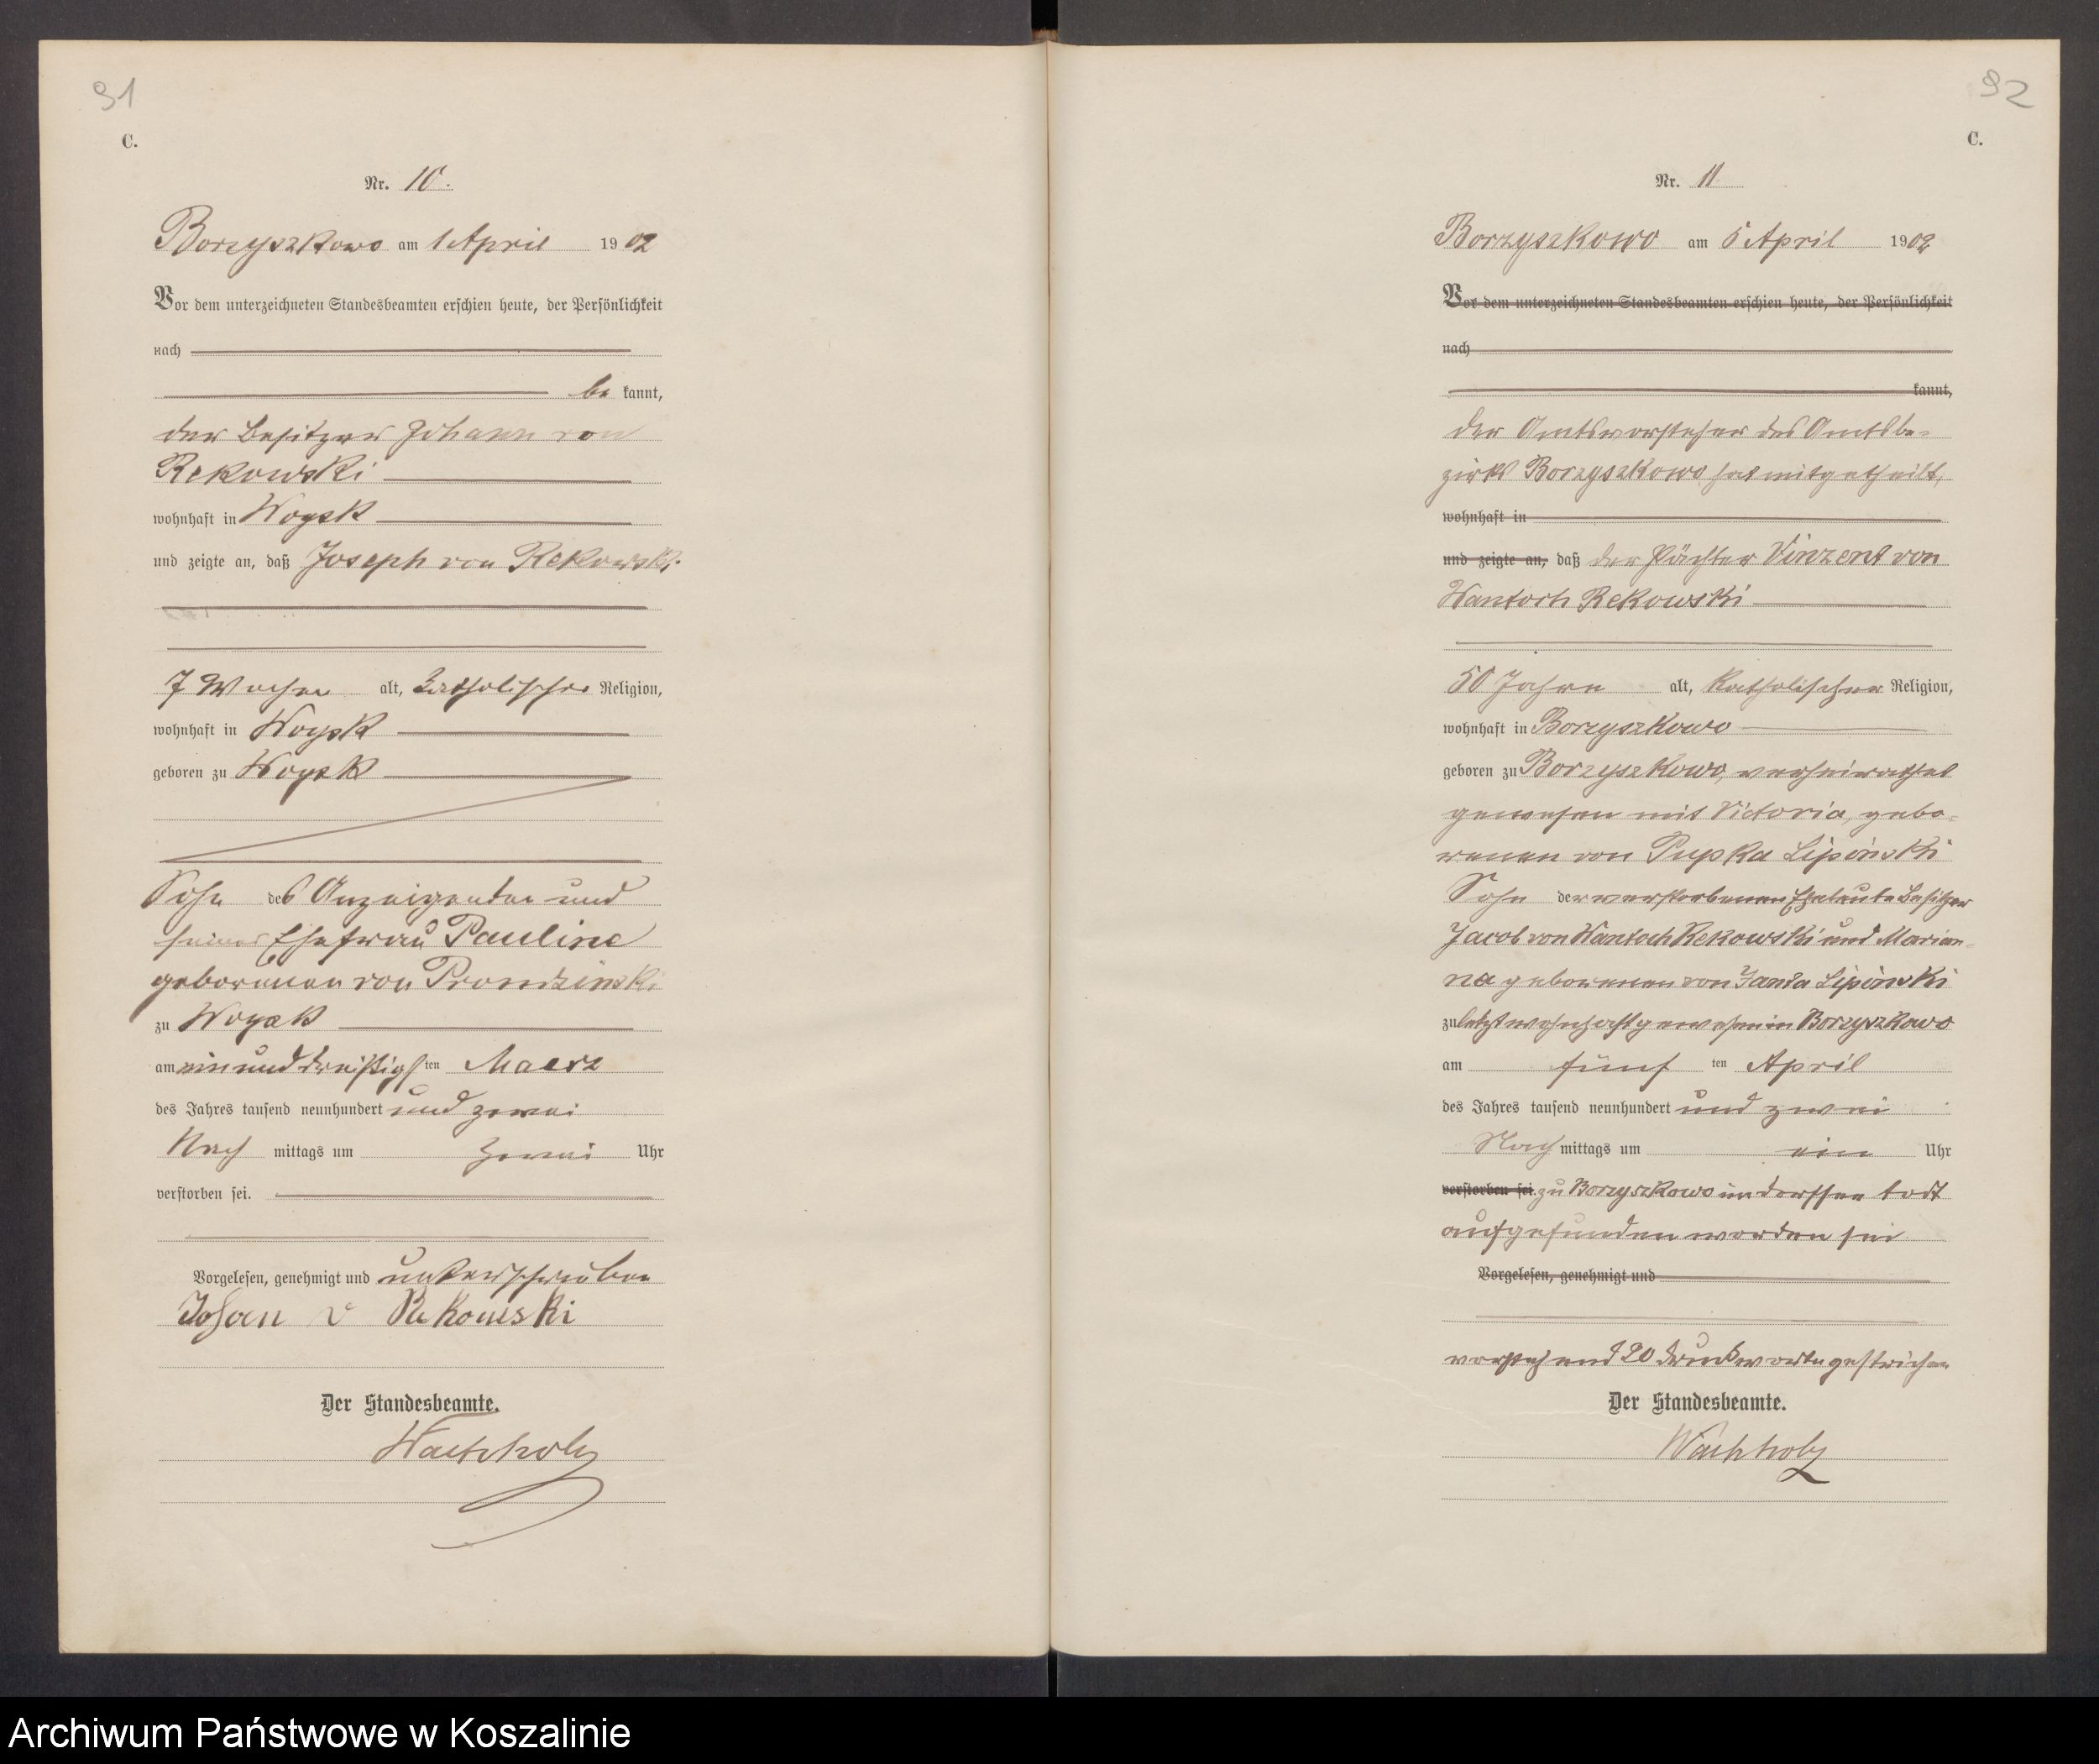 91
C.
Nr. 10.
Borzyszkowo am 1 April 1902
Vor dem unterzeichneten Standesbeamten erschien heute, der Persönlichkeit
nach
be kannt,
der Besitzer Johann von
Rekowski
wohnhaft in Woysk
und zeigte an, daß Joseph von Rekowski
7 Wochen alt, katholischer Religion,
wohnhaft in Woysk
geboren zu Woysk
Sohn des Anzeigenden und
seiner Ehefrau Pauline
geborenen von Prondzinski
zu Woysk
am einunddreißigsten Maerz
des Jahres tausend neunhundert und zwei
Nach mittags um zwei Uhr
verstorben sei.
Vorgelesen, genehmigt und unterschrieben
Johan v Rekowski
Der Standesbeamte.
Wachholz
92
C.
Nr. 11
Borzyszkowo am 5 April 1902
Vor dem unterzeichneten Standesbeamten erschien heute, der Persönlichkeit
nach
kannt,
Der Amtsvorsteher des Amtsbe-
zirks Borzyszkowo hat mitgetheilt,
wohnhaft in
und zeigte an, daß der Pächter Vinzent von
Wantoch Rekowski
50 Jahre alt, katholischer Religion,
wohnhaft in Borzyszkowo
geboren zu Borzyszkowo, verheirathet
gewesen mit Victoria, gebo-
renen von Pupka Lipinski
Sohn der verstorbenen Eheleute Besitzer
Jacob von Wantoch Rekowski und Marian-
na geborenen von Janta Lipinski
zuletzt wohnhaft gewesen in Borzyszkowo
am fünf ten April
des Jahres tausend neunhundert und zwei
Nach mittags um ein Uhr
verstorben sei. zu Borzyszkowo todt
aufgefunden worden sei
Vorgelesen, genehmigt und
vorstehend 20 Druckworte gestrichen
Der Standesbeamte.
Wachholz
Archiwum Państwowe w Koszalinie